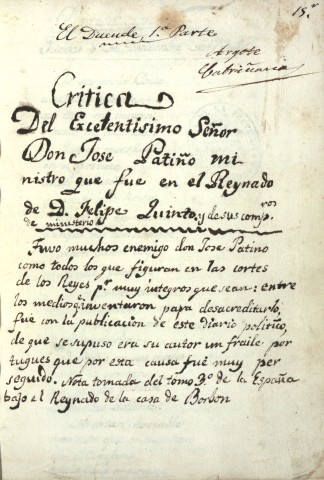 15.r
El Duende 1.a Parte
Argote
Cabriñana
Critica
Del Excelentisimo Señor
Don Jose Patiño mi
nistro que fue en el Reynado
de D. Felipe Quinto, y de sus comp.ros
de ministerio
Tuvo muchos enemigo don Jose Patino
como todos los que figuran en las cortes
de los Reyes p.r muy integros que sean: entre
los medios q.e inventaron para desacreditarlo,
fue con la publicacion de este diario politico,
de que se supuso era su autor un fraile por
tugues que por esta causa fue muy per
seguido. Nota tomada del tomo 3.o de la España
bajo el Reynado de la casa de Borbon